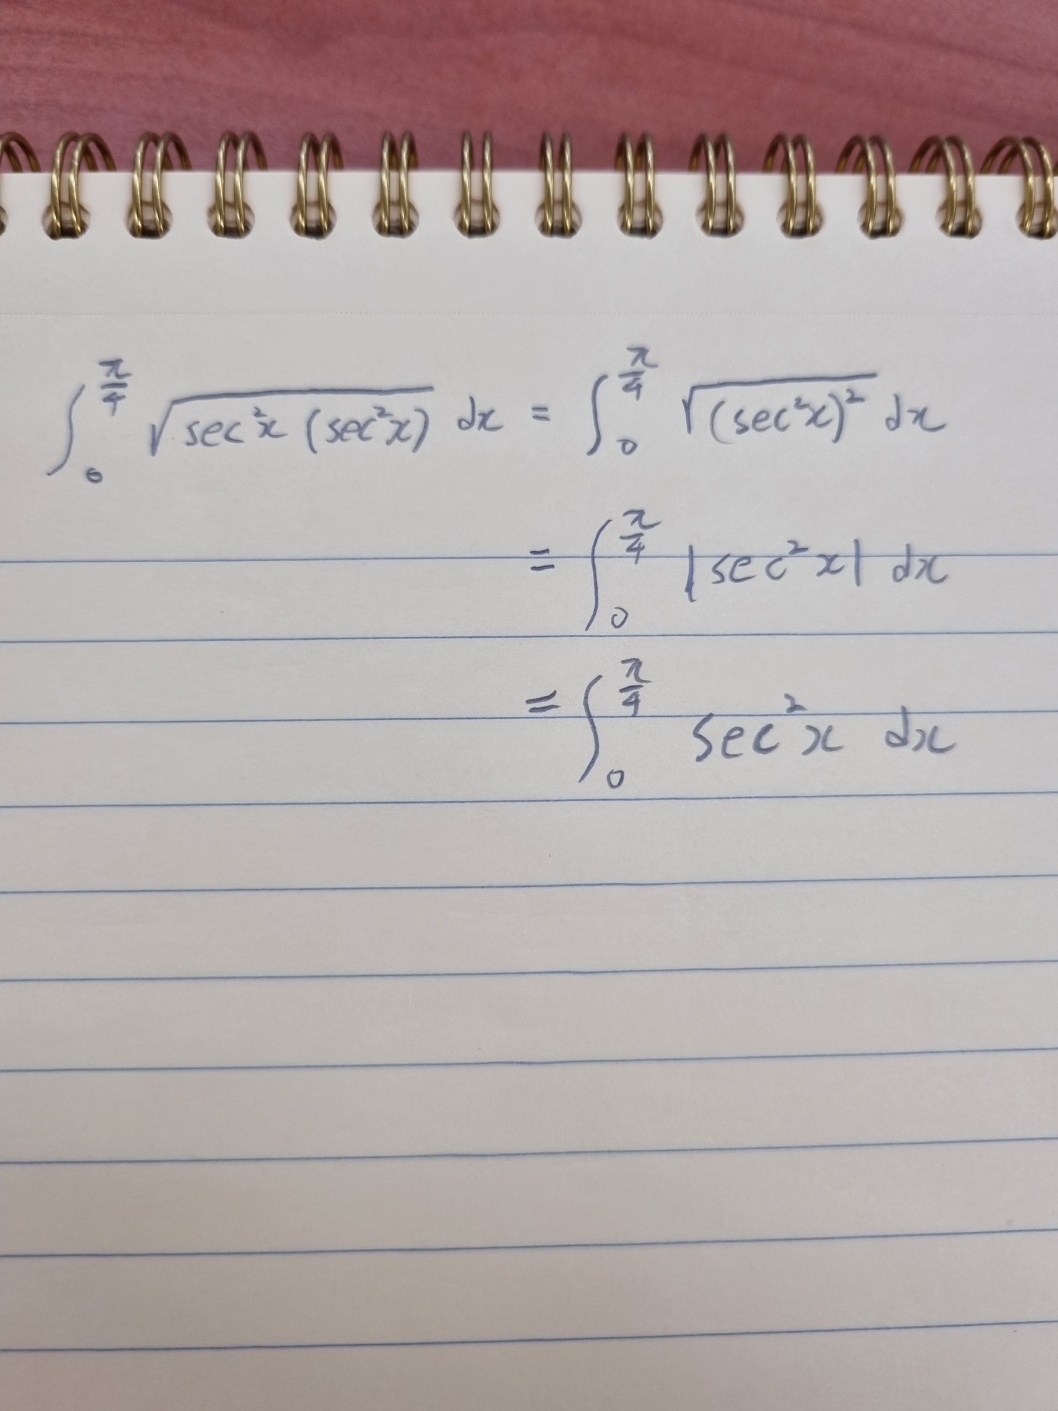 ∫₀^{π/4} √(sec²x (sec²x)) dx = ∫₀^{π/4} √((sec²x)²) dx
= ∫₀^{π/4} |sec²x| dx
= ∫₀^{π/4} sec²x dx